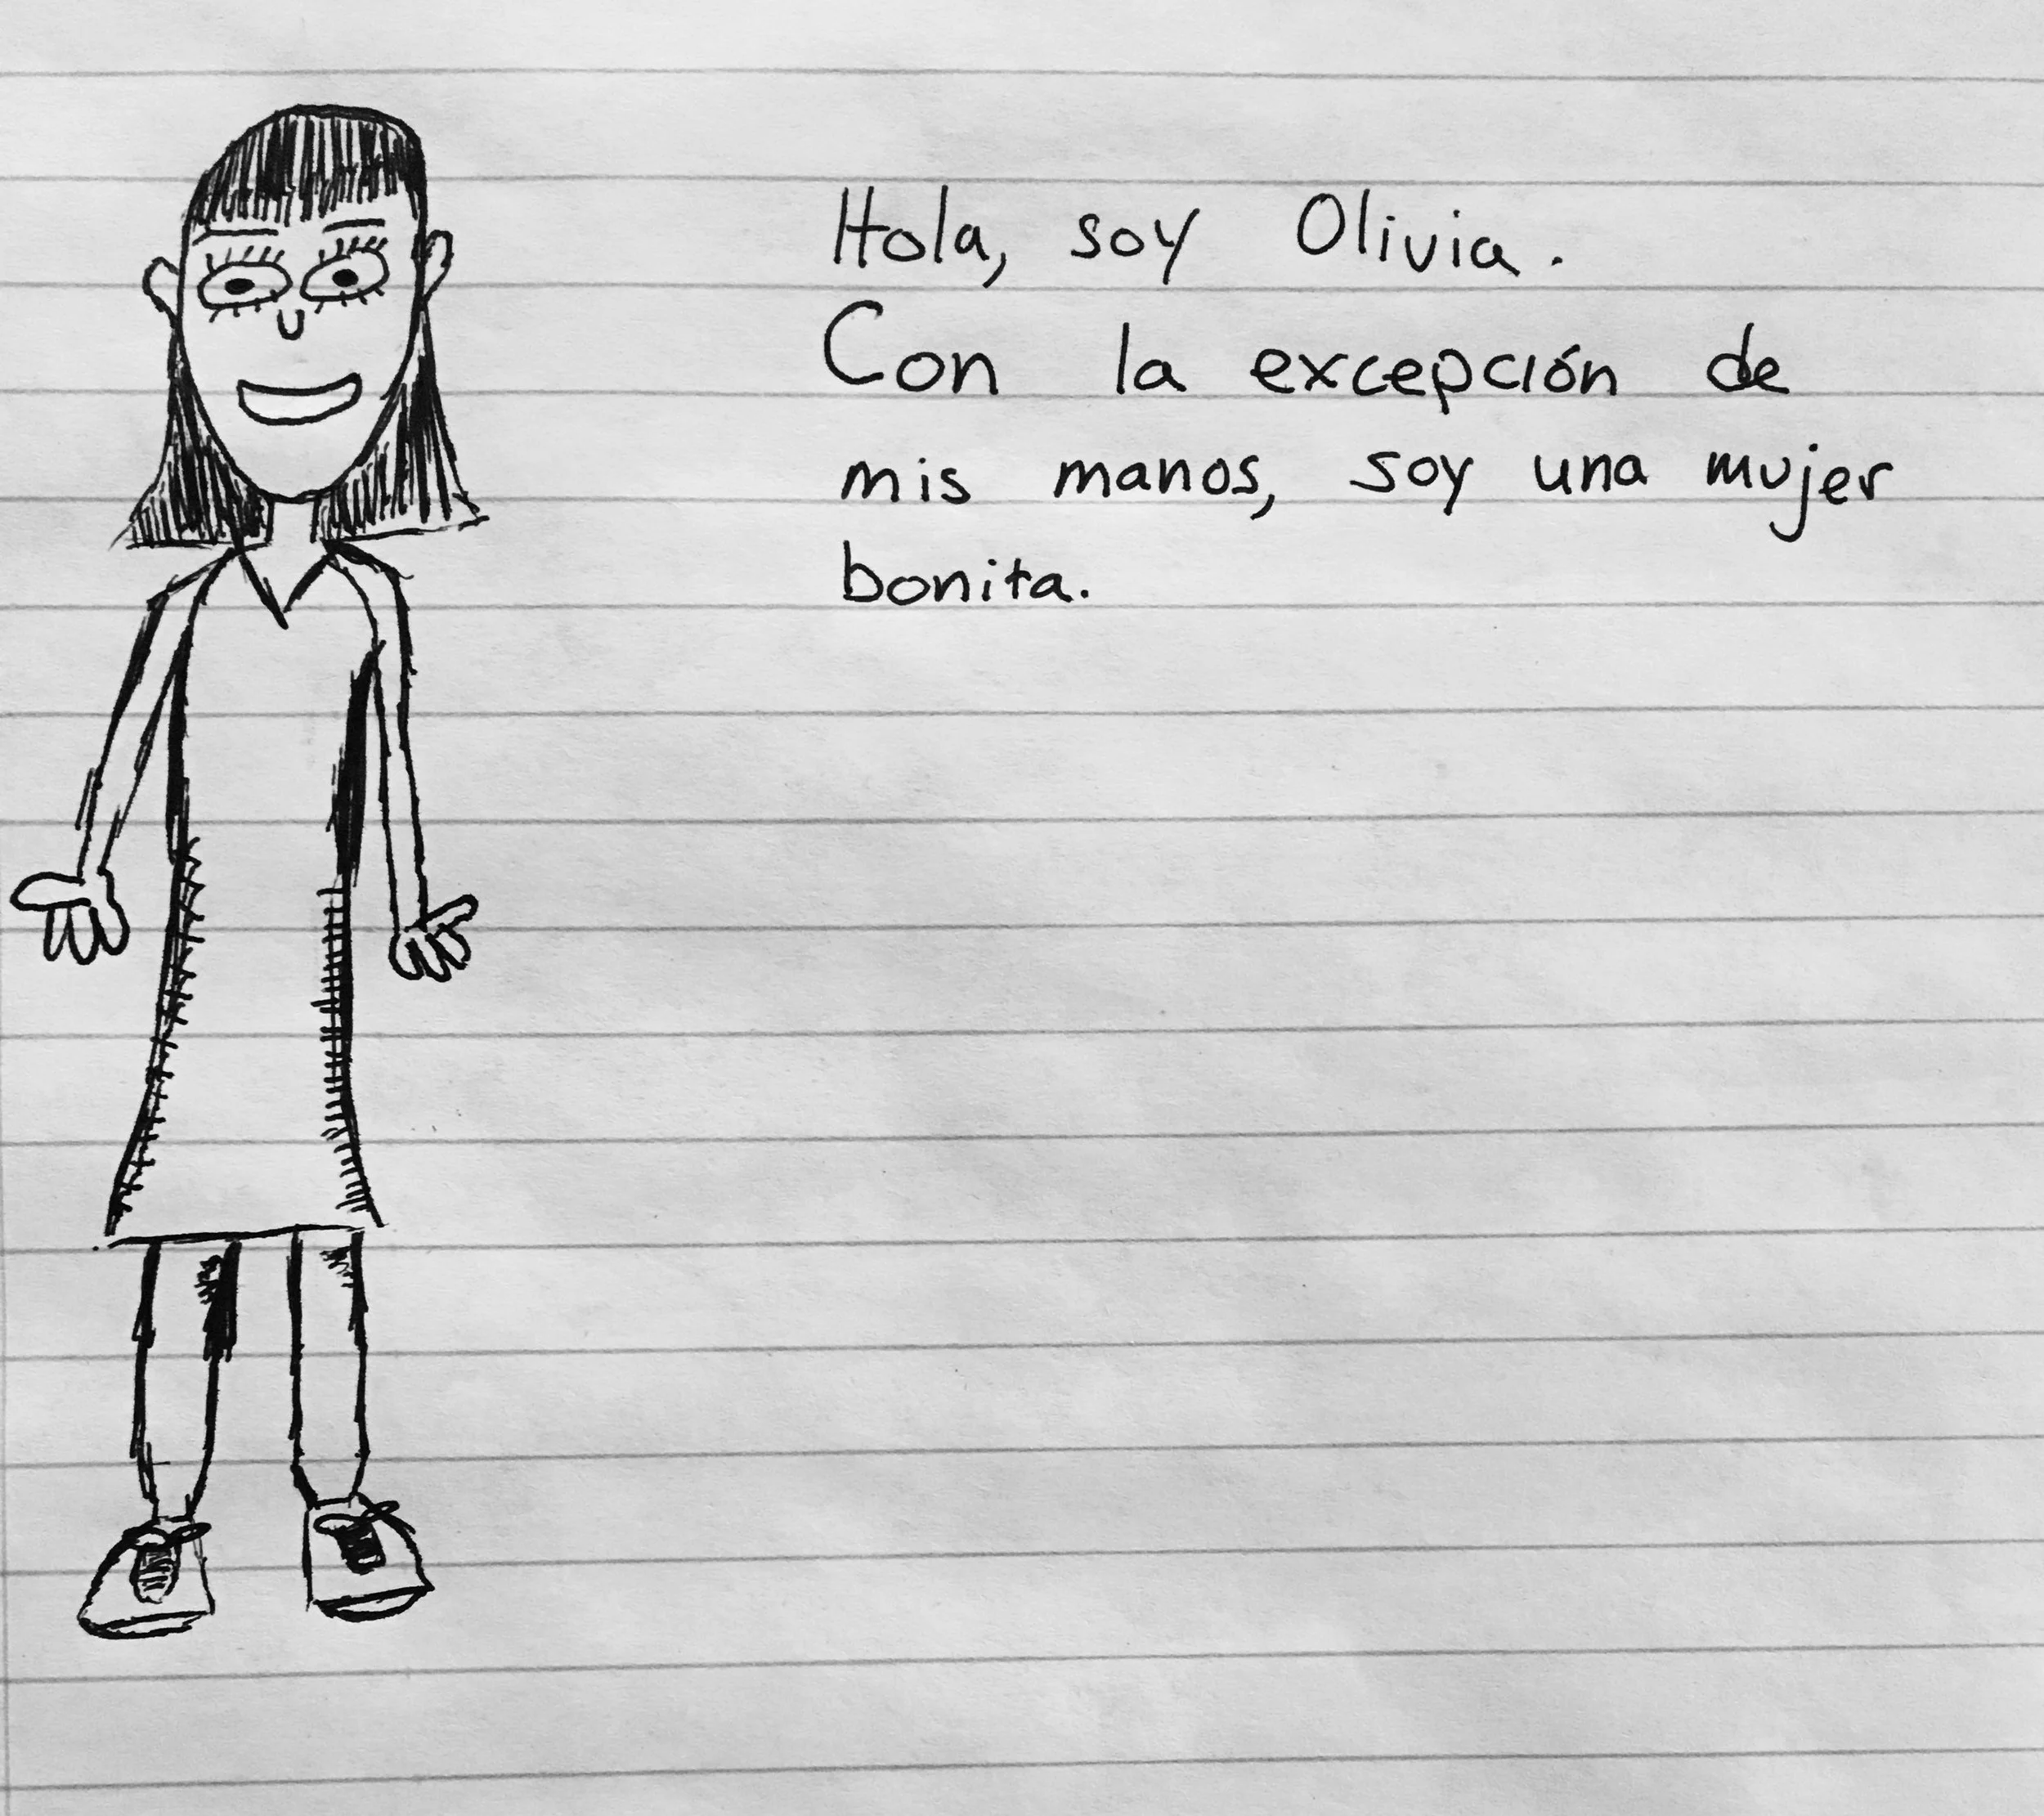 Hola, soy Olivia.
Con la excepción de
mis manos, soy una mujer
bonita.